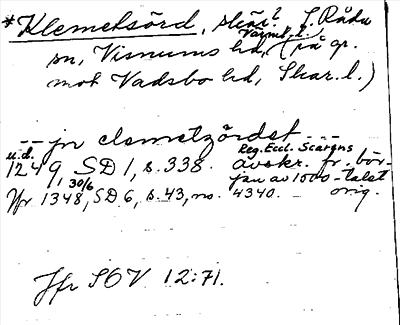 *Klemetsörd, skär? S. Råda
Värml. l.
sn, Visnums hd, (på gr.
mot Vadsbo hd, Skar. l.)
-- jn clemetzördet ---
u.d. Reg. Eccl. Scarens
1249, SD 1, s. 338. avskr. fr. bör-
jan av 1000-talet
1/30/6
Yfr 1348, SD 6, s. 43, no. 4340. orig.
Jfr SOV 12:71.